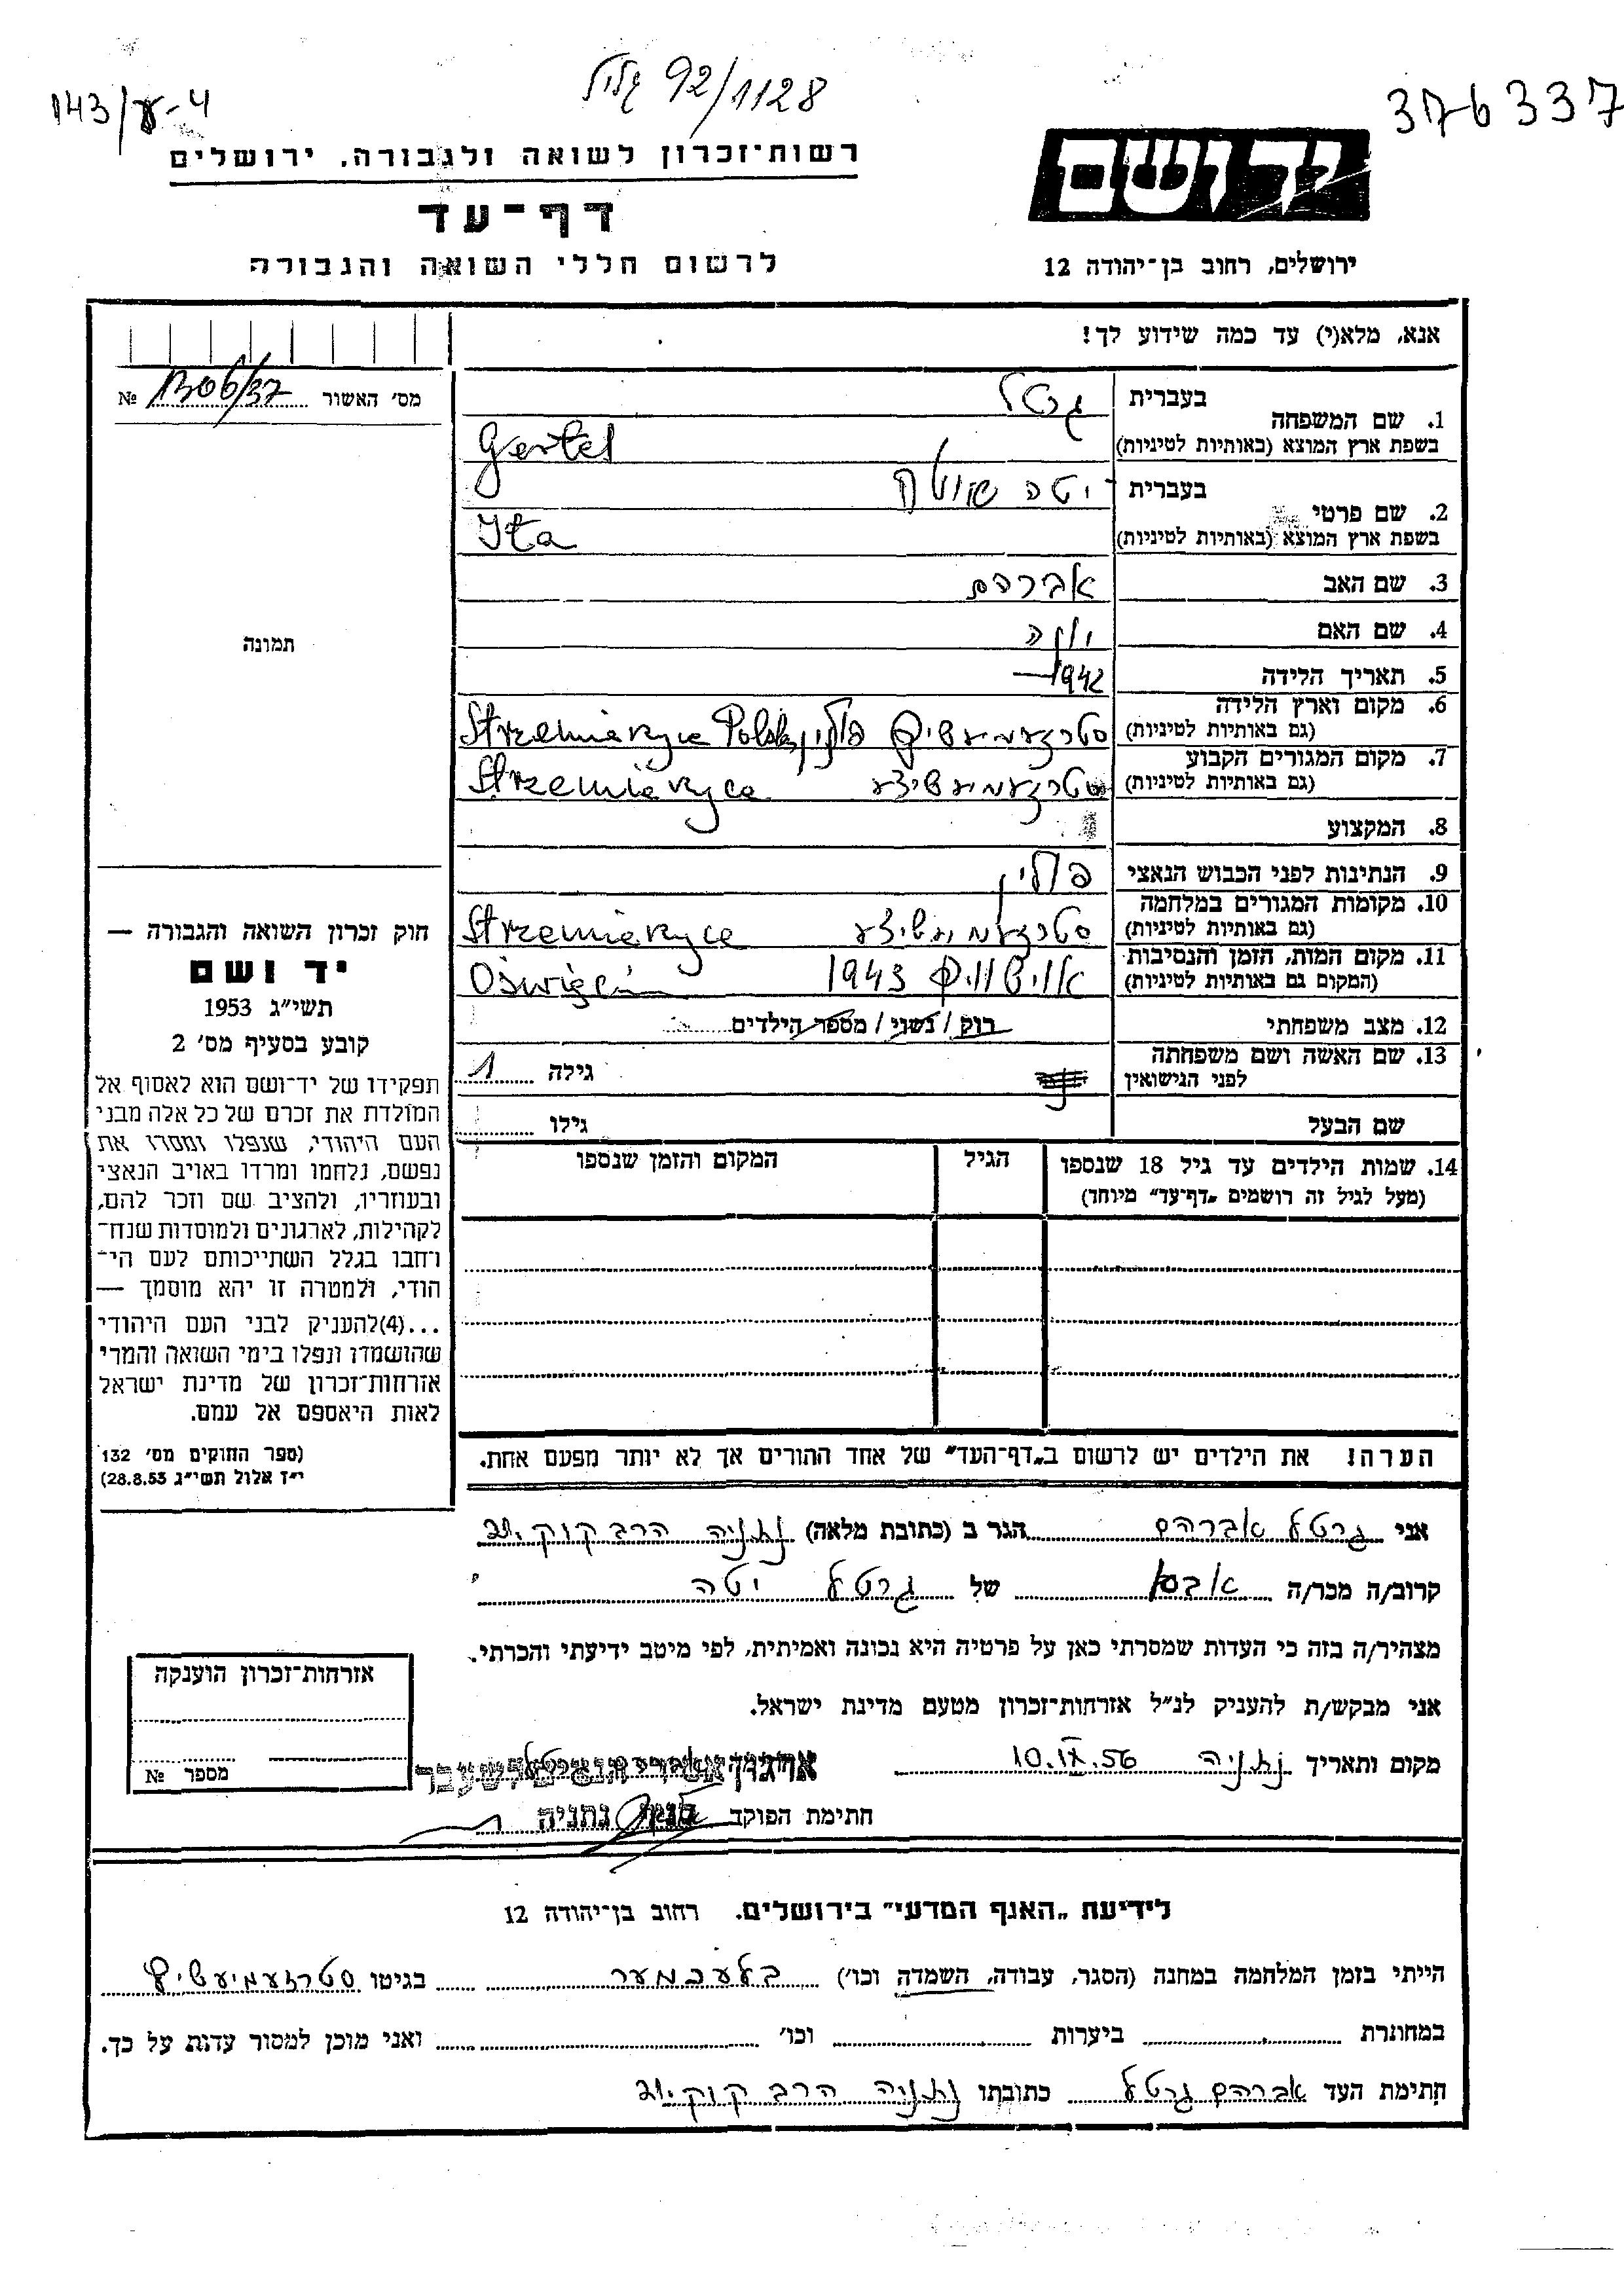 143/ע-4
גליל 92/1128
376337
רשות־זכרון לשואה ולגבורה, ירושלים
יד ושם
דף-עד
לרשום חללי השואה והגבורה
ירושלים, רחוב בן־יהודה 12
אנא, מלא(י) עד כמה שידוע לך!
מס' האשור 1306/37 №
1. שם המשפחה
בעברית גרטל
בשפת ארץ המוצא (באותיות לטיניות) Gertel
2. שם פרטי
בעברית יטה
בשפת ארץ המוצא (באותיות לטיניות) Ita
3. שם האב אברהם
4. שם האם
5. תאריך הלידה 1942
6. מקום וארץ הלידה
(גם באותיות לטיניות) סטרזעמיעשיץ פולין Strzemieszyce Polska
7. מקום המגורים הקבוע
(גם באותיות לטיניות) סטרזעמיעשיצע Strzemieszyce
8. המקצוע
9. הנתינות לפני הכבוש הנאצי פולין
10. מקומות המגורים במלחמה
(גם באותיות לטיניות) סטרזעמיעשיצע Strzemieszyce
11. מקום המות, הזמן והנסיבות
(המקום גם באותיות לטיניות) אוישוויץ 1943 Oświęcim
12. מצב משפחתי רוק / נשוי / מספר הילדים
13. שם האשה ושם משפחתה
לפני הנישואין
גילה 1
שם הבעל
גילו
14. שמות הילדים עד גיל 18 שנספו
(מעל לגיל זה רושמים „דף-עד" מיוחד)
הגיל
המקום והזמן שנספו
תמונה
חוק זכרון השואה והגבורה —
יד ושם
תשי"ג 1953
קובע בסעיף מס' 2
תפקידו של יד־ושם הוא לאסוף אל
המולדת את זכרם של כל אלה מבני
העם היהודי, שנפלו ומסרו את
נפשם, נלחמו ומרדו באויב הנאצי
ובעוזריו, ולהציב שם וזכר להם,
לקהילות, לארגונים ולמוסדות שנח־
רחבו בגלל השתייכותם לעם הי־
הודי, ולמטרה זו יהא מוסמך —
...(4)להעניק לבני העם היהודי
שהושמדו ונפלו בימי השואה והמרי
אזרחות־זכרון של מדינת ישראל
לאות היאספם אל עמם.
(ספר החוקים מס' 132
י"ז אלול תשי"ג 28.8.53)
הערה! את הילדים יש לרשום ב„דף-העד" של אחד ההורים אך לא יותר מפעם אחת.
אני גרטל אברהם הגר ב (כתובת מלאה) נתניה הרב קוק 21.
קרוב/ה מכר/ה אבא של גרטל יטה
מצהיר/ה בזה כי העדות שמסרתי כאן על פרטיה היא נכונה ואמיתית, לפי מיטב ידיעתי והכרתי.
אני מבקש/ת להעניק לנ"ל אזרחות־זכרון מטעם מדינת ישראל.
מקום ותאריך נתניה 10.IX.56
חתימת הפוקד
סניף נתניה
אזרחות־זכרון הוענקה
מספר №
לידיעת „האגף המדעי" בירושלים. רחוב בן־יהודה 12
הייתי בזמן המלחמה במחנה (הסגר, עבודה, השמדה וכו') בלעכמער בגיטו סטרזעמיעשיץ
במחתרת ביערות וכו' ואני מוכן למסור עדות על כך.
חתימת העד אברהם גרטל כתובתו נתניה הרב קוק 21.